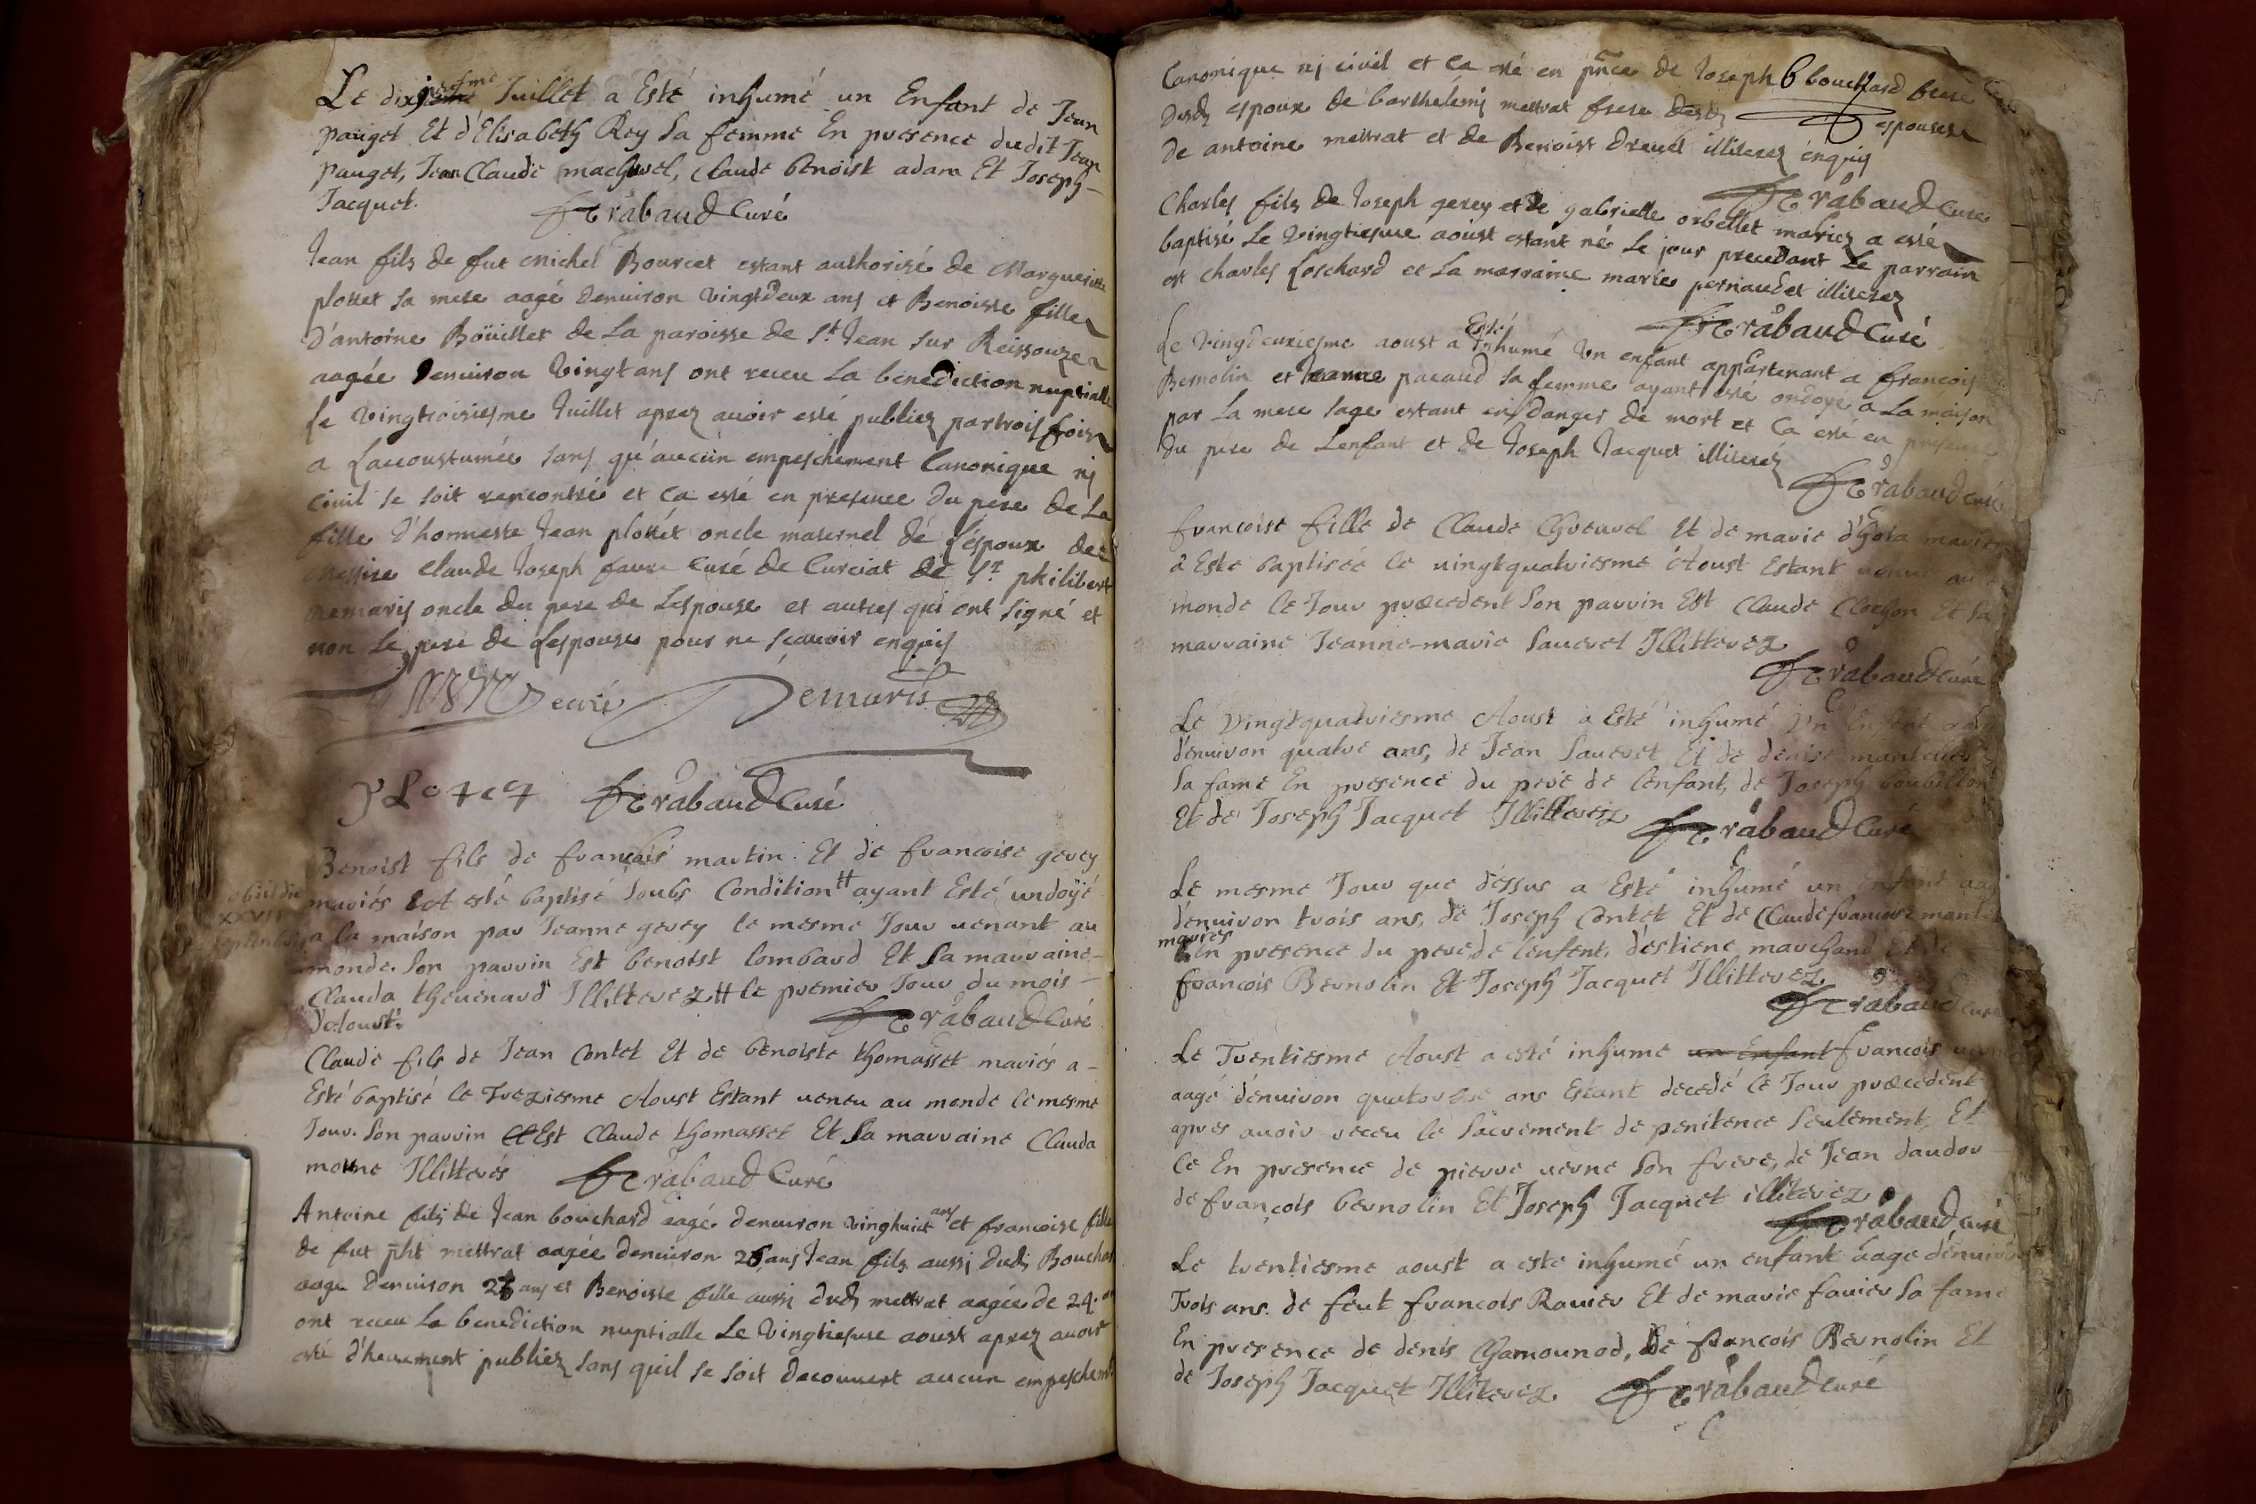 Le dixiesme Juillet a Esté inhumé un Enfant de Jean
pauget Et d'Elisabeth Rey sa femme En presence dudit Jean
pauget, Jean Claude machurel, Claude benoist adam Et Joseph
Jacquet. Trabaud Curé
Jean fils de fut michel Bourcet estant authorisé de Marguerite
plottet sa mere aagé denuiron vingtdeux ans et Benoiste fille
D'antoine Boüillet de La paroisse de St Jean sur Reissouze
aagée denuiron Vingt ans ont receu La benediction nuptialle
le vingtroisiesme Juillet aprez auoir esté publiez partrois fois
a Laccoustumée sans qu'aucun empeschement Canonique nj
Ciuil se soit rencontré et Ca esté en presence du pere de La
fille d'honneste Jean plottet oncle maternel de l'espoux de
Messire Claude Joseph faure Curé de Curciat de Sr philibert
demaris oncle du pere de Lespouse et autres qui ont signé et
non Le pere de Lespouse pour ne scauoir enquis
Demaris
Trabaud Curé
Benoist fils de francois martin Et de francoise gevey
mariés Et esté baptisé soubs Condition # ayant Esté undoÿé
a la maison par Jeanne gevey le mesme Jour uenant au
obiit die
XXVII
septembris
monde. son parrin Est benoist lombard Et sa marraine
Clauda theuenard Illitterez # le premier Jour du mois
d'aoust. Trabaud Curé
Claude fils de Jean Contet Et de benoiste thomasset mariés a
Esté baptisé le Treziesme Aoust Estant uenu au monde le mesme
Jour. son parrin Est Claude thomasset Et sa marraine Clauda
moine Illitterés Trabaud Curé
Antoine fils de Jean bouchard aagé denuiron vinghuict ans et francoise fille
de fut pht mettrat aagée denuiron 26 ans Jean fils aussi dudt Bouchard
aagé denuiron ans et Benoiste fille aussi dudt mettrat aagée de 24
ont receu La benediction nuptialle Le Vingtiesme aoust aprez auoir
esté d'heuement publiez sans quil se soit decouuert aucun empeschemt
Canonique nj ciuil et Ca esté en pnce de Joseph bouchard frere
Desdt espoux de barthelemj mettrat frere desdt espouses
de antoine mettrat et de Benoist dreuet illiterez enquis
Trabaud Curé
Charles fils de Joseph gerey et de gabrielle orbellet mariez a esté
baptisé Le Vingtiesme aoust estant né Le jour precedant Le parrain
est charles Loschard et La marraine marie pernaudet illiterez
Trabaud Curé
Le Vingdeuxiesme aoust a Esté Inhumé Vn enfant appartenant a francois
Bernolin et Jeanne pacaud sa femme ayant esté ondoyé a La maison
par La mere sage estant en danger de mort et Ca esté en presence
du pere de Lenfant et de Joseph Jacquet illiterez
Trabaud Curé
francoise fille de Claude Cheurel Et de marie mariez
à Esté baptisée le uingtquatriesme Aoust Estant uenue au
monde le Jour præcedent son parrin Est Claude Cochon Et sa
marraine Jeanne-marie Saueret Illitterez
Trabaud Curé
Le Vingtquatriesme Aoust a Esté inhumé Vn Enfent aagé
d'enuiron quatre ans, de Jean Saueret Et de denise
sa fame En presence du pere de l'enfant, de Joseph
Et de Joseph Jacquet Illitterez Trabaud Curé
Le mesme Jour que dessus a Esté inhumé un Enfent aagé
d'enuiron trois ans, de Joseph Contet Et de Claude francoise
mariés
En presence du pere de l'enfent, d'estiene marchand Et de
francois Bernolin Et Joseph Jacquet Illitterez
Trabaud Curé
Le Trentiesme Aoust a esté inhumé un Enfant francois
aagé d'enuiron quatorse ans Estant decedé le Jour præcedent
apres auoir receu le sacrement de penitence seulement, Et
Ce En presence de pierre uerne son frere, de Jean daudor
de francois bernolin Et Joseph Jacquet illiterez
Trabaud Curé
Le trentiesme aoust a este inhumé un enfant aage d'enuiron
Trois ans. de feut francois Rauier Et de marie fauier sa fame
En presence de denis Chamounod, de francois Bernolin Et
de Joseph Jacquet Illiterez. Trabaud Curé